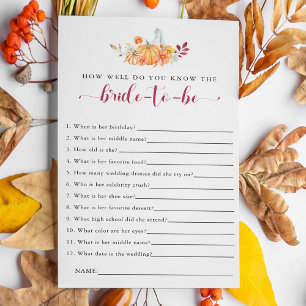 HOW WELL DO YOU KNOW THE
bride-to-be
1. When is her birthday?
2. What is her middle name?
3. How old is she?
4. What is her favorite food?
5. How many wedding dresses did she try on?
6. Who is her celebrity crush?
7. What is her shoe size?
8. What is her favorite dessert?
9. What high school did she attend?
10. What color are her eyes?
11. What is her middle name?
12. What date is the wedding?
NAME: